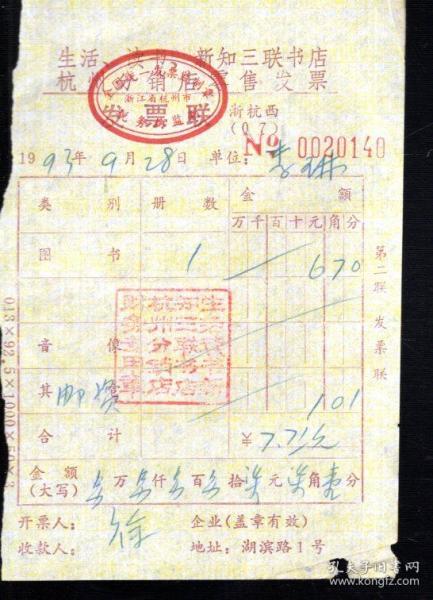 生活、读书、新知三联书店
杭州分销店零售发票
全国统一发票监制章
浙江省杭州市
税务局监制
发票联
浙杭西
(07)
№ 0020140
1993年9月28日 单位:李
类别 册数 金额
万千百十元角分
图书 1 670
音像
其 邮资 101
合计 ¥7.71元
金额(大写) 万 仟 百 拾柒元柒角壹分
开票人: 徐 企业(盖章有效)
收款人: 地址:湖滨路1号
第二联 发票联
生活读书新知三联书店杭州分销店财务专用章
孔夫子旧书网
www.kongfz.com